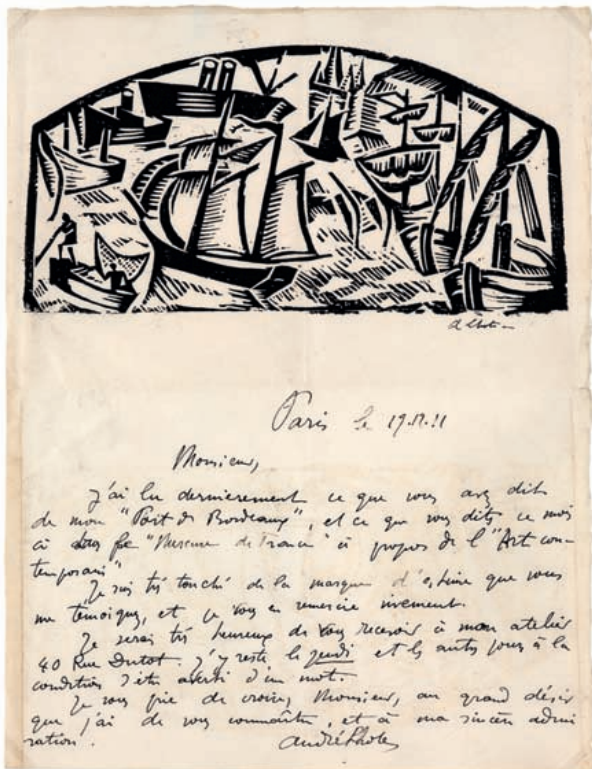 A Lhote
Paris le
Monsieur,
J'ai lu dernièrement ce que vous avez dit
de mon "Port de Bordeaux", et ce que vous dites, ce mois
"Mercure de France" à propos de l'"Art con-
temporain"
Je suis très touché de la marque d'estime que vous
me témoignez, et je vous en remercie vivement.
Je serai très heureux de vous recevoir à mon atelier
40 Rue Dutot. J'y reste le jeudi et les autres jours à la
condition d'être averti d'un mot.
Je vous prie de croire, Monsieur, au grand désir
que j'ai de vous connaître, et à ma sincère admi
ration.
André Lhote